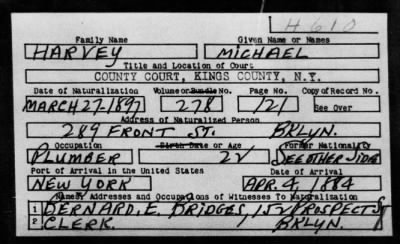 H610
Family Name Given Name or Names
HARVEY MICHAEL
Title and Location of Court
COUNTY COURT, KINGS COUNTY, N.Y.
Date of Naturalization Volume or Bundle No. Page No. Copy of Record No.
MARCH 27-1897 278 121 See Over
Address of Naturalized Person
289 FRONT ST. BKLYN.
Occupation Birth Date or Age Former Nationality
PLUMBER 22 SEE OTHER SIDE
Port of Arrival in the United States Date of Arrival
NEW YORK APR. 4, 1884
Names, Addresses and Occupations of Witnesses To Naturalization
1 BERNARD. E. BRIDGES, 152 PROSPECT ST
2 CLERK. BKLYN.